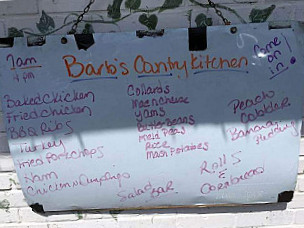 7am
4 pm
Barb's Country Kitchen
Come on in!
Baked Chicken
Fried Chicken
BBQ Ribs
Turkey
Fried Pork Chops
Ham
Chicken
Collards
Mac n Cheese
Yams
Butter Beans
Field Peas
Rice
Mash Potatoes
Salad Bar
Rolls
&
Cornbread
Peach
Cobbler
Banana
Pudding